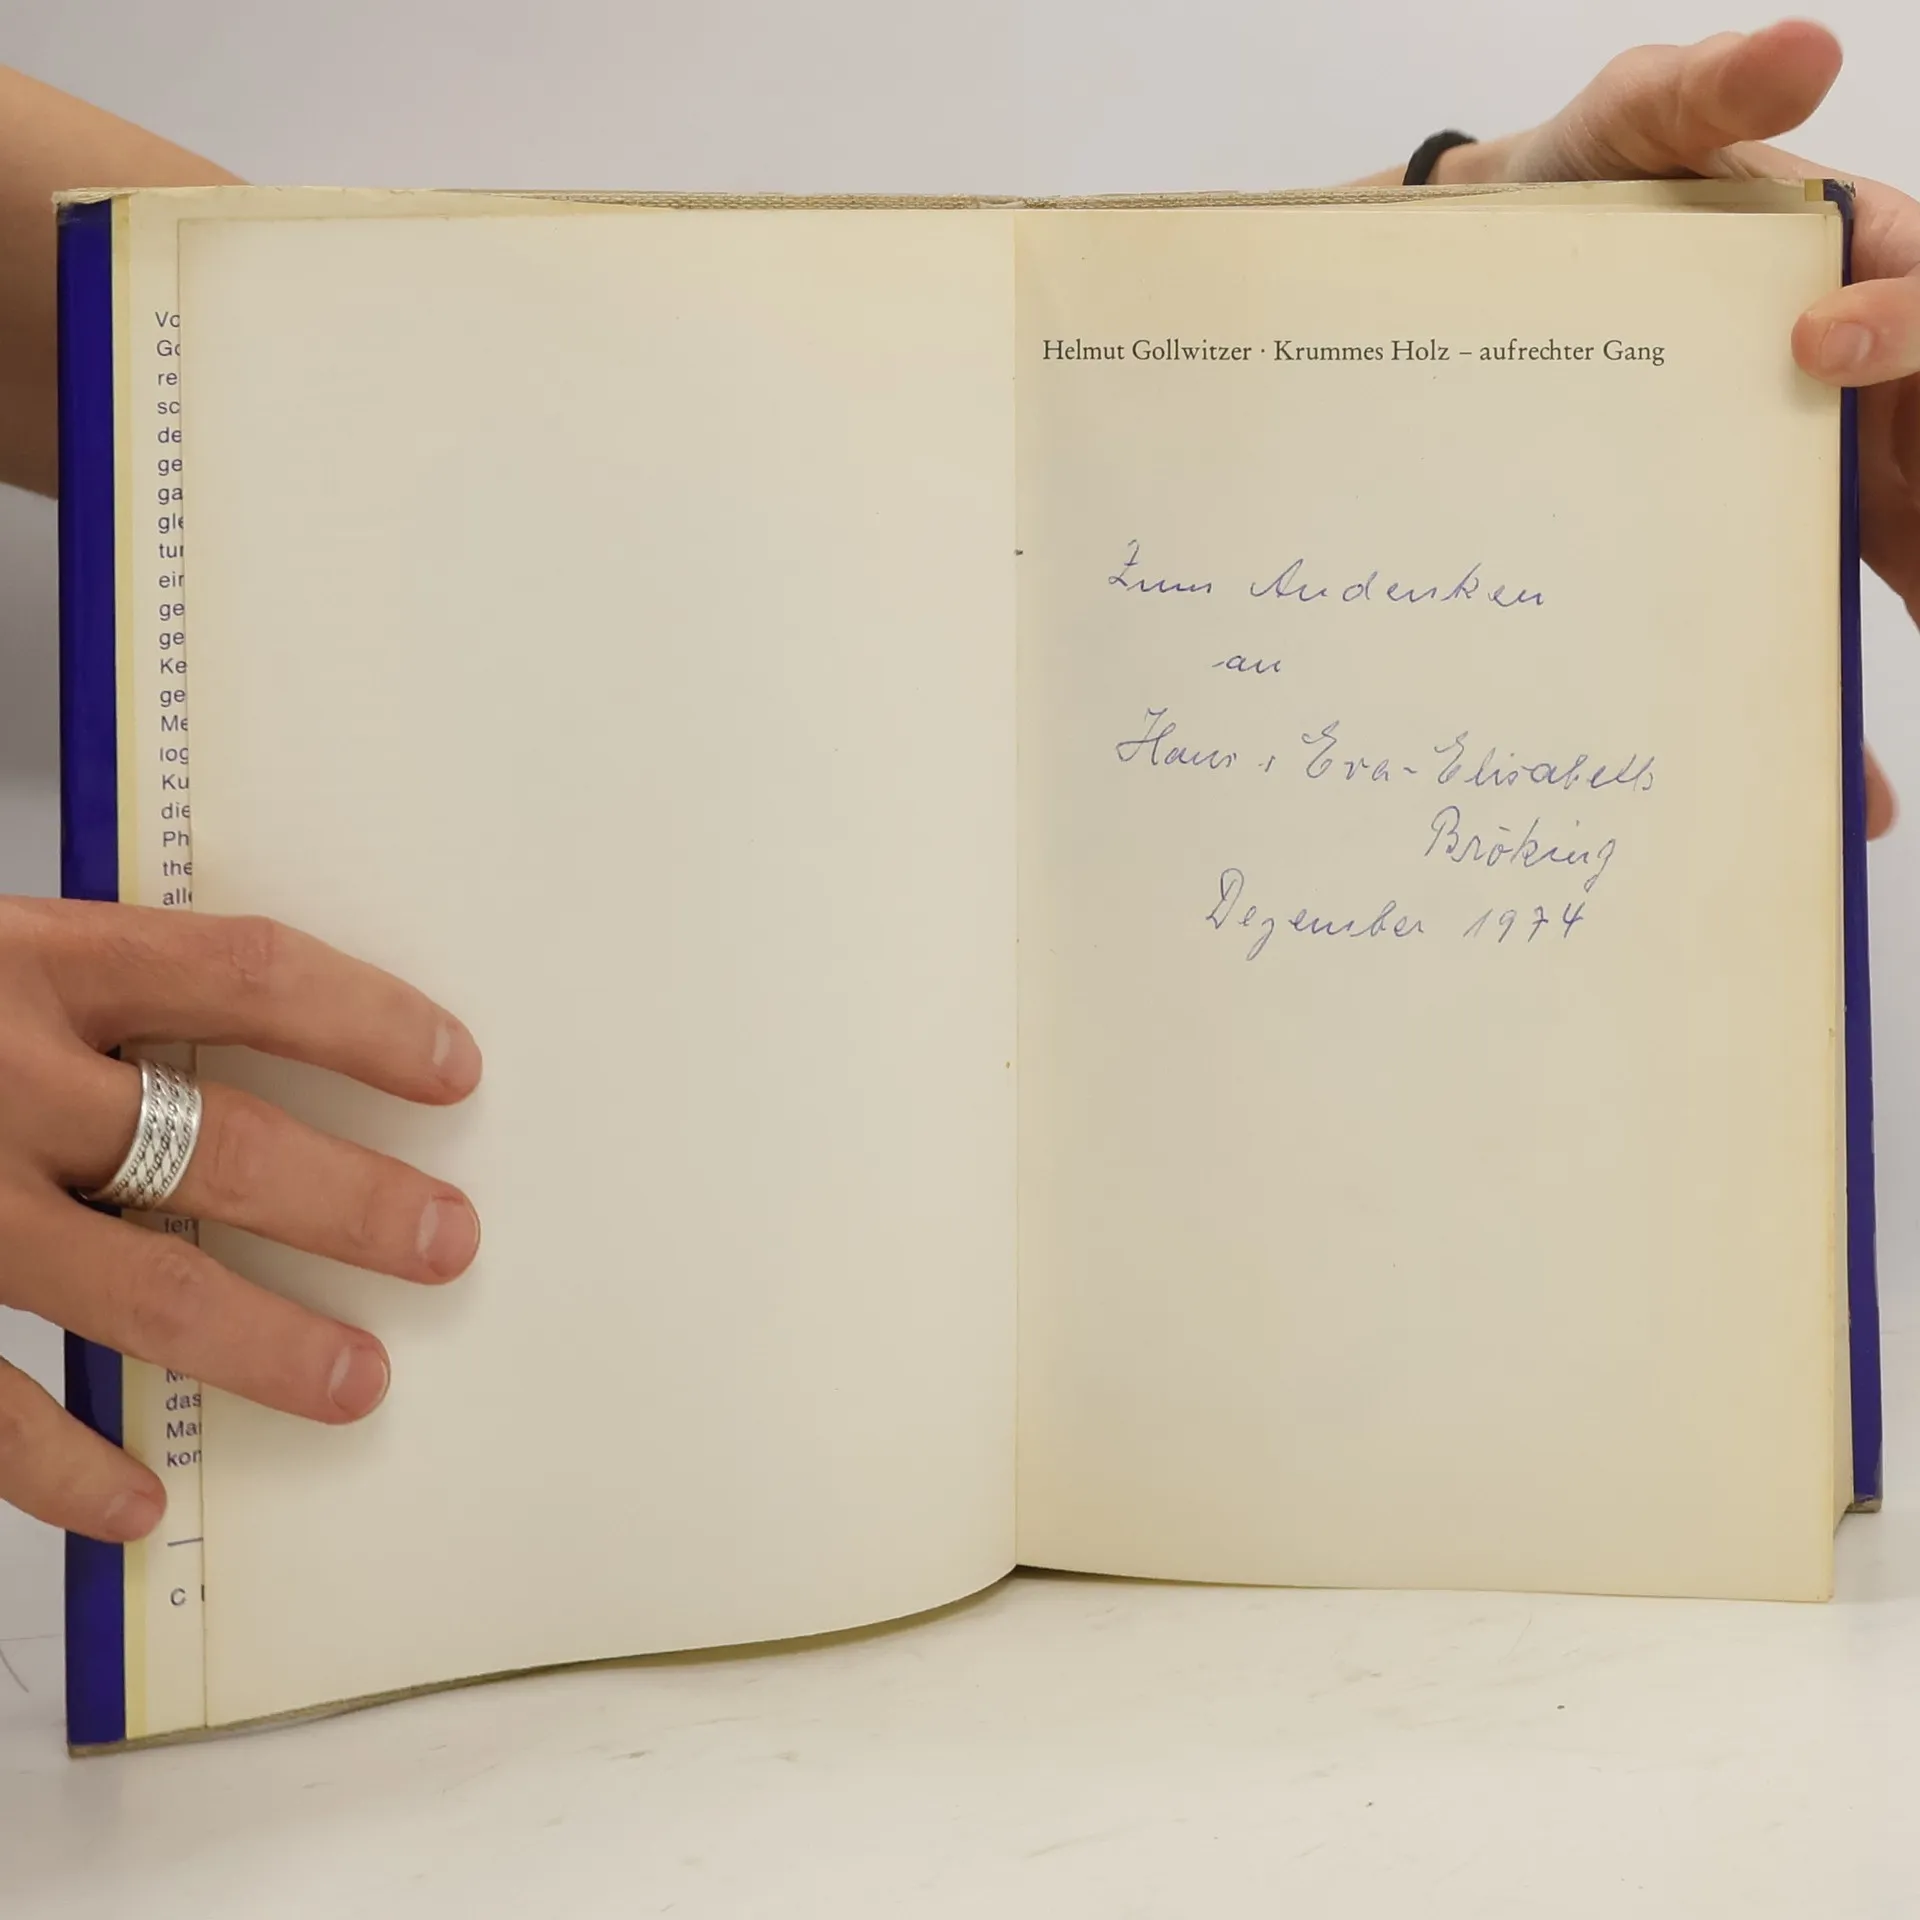 Vo
Go
re
sc
de
ge
ga
gle
tur
eir
ge
ge
Ke
ge
Me
log
Ku
die
Ph
the
alle
ten
das
Mar
kon
C
Helmut Gollwitzer · Krummes Holz – aufrechter Gang
Zum Andenken
an
Hans + Eva-Elisabeth
Bröking
Dezember 1974